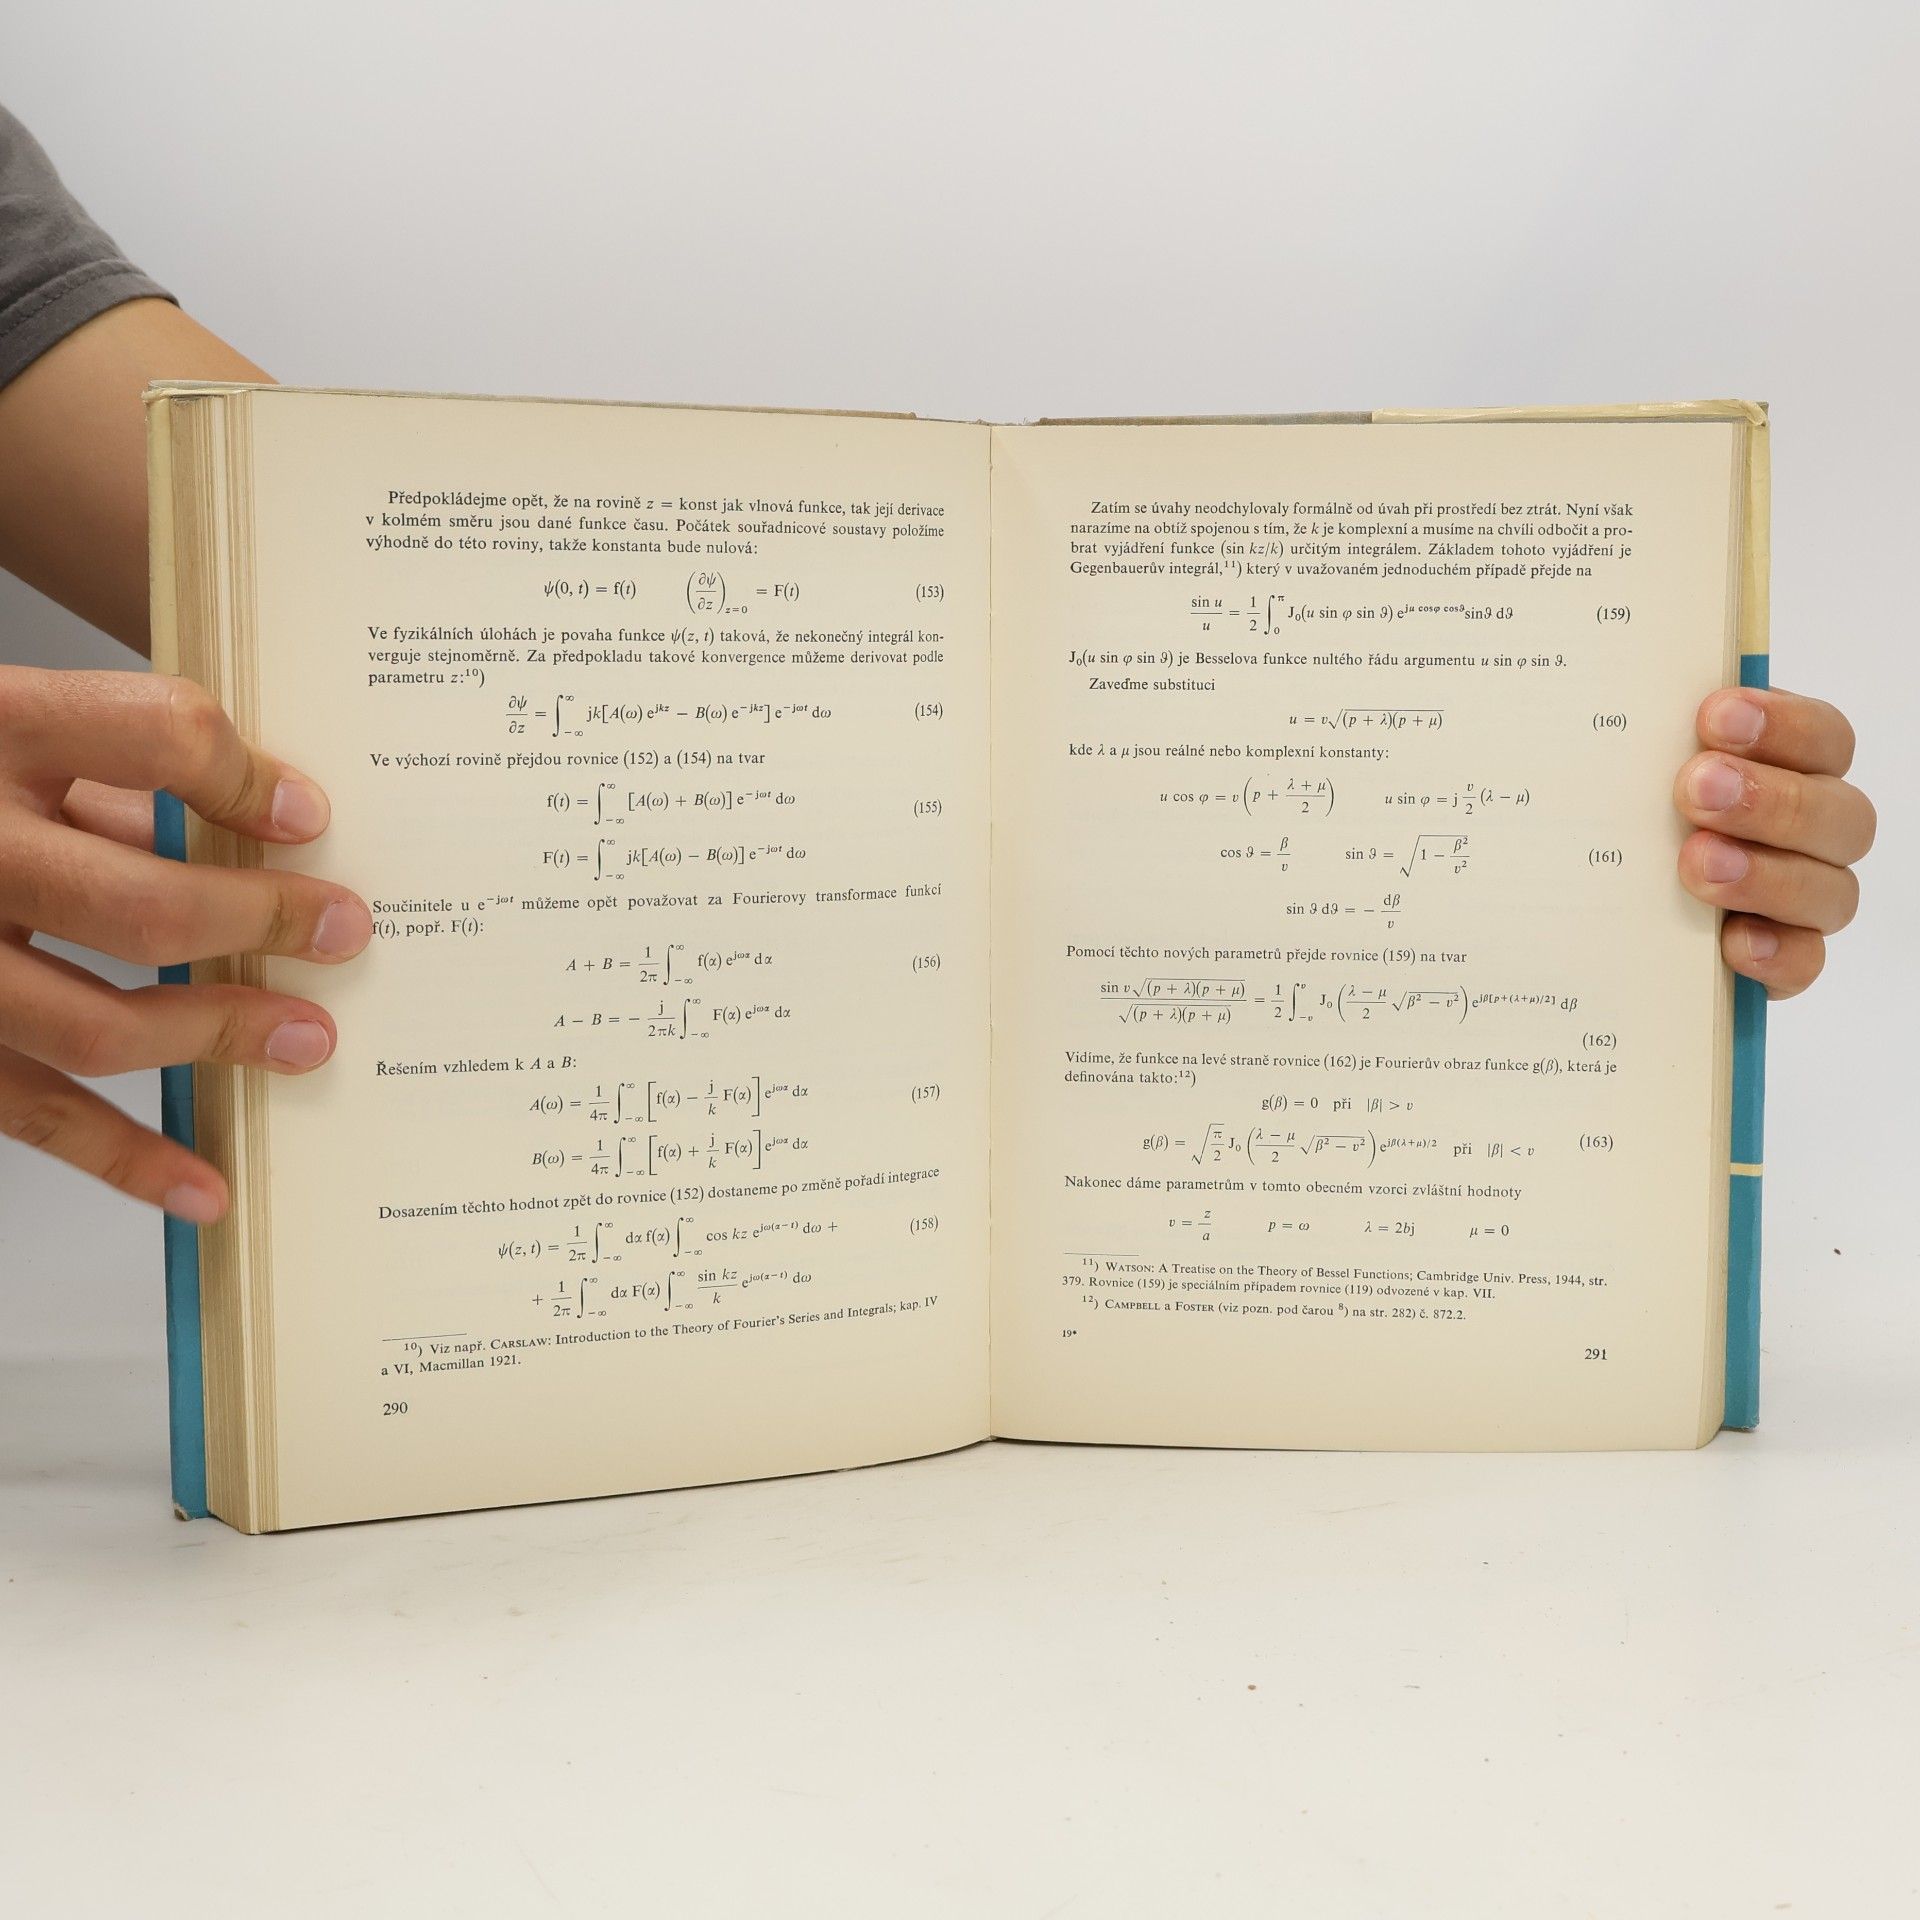 Předpokládejme opět, že na rovině z = konst jak vlnová funkce, tak její derivace
v kolmém směru jsou dané funkce času. Počátek souřadnicové soustavy položíme
výhodně do této roviny, takže konstanta bude nulová:
ψ(0, t) = f(t) (∂ψ/∂z)_{z=0} = F(t) (153)
Ve fyzikálních úlohách je povaha funkce ψ(z, t) taková, že nekonečný integrál kon-
verguje stejnoměrně. Za předpokladu takové konvergence můžeme derivovat podle
parametru z:¹⁰)
∂ψ/∂z = ∫_{-∞}^{∞} jk[A(ω) e^{jkz} − B(ω) e^{−jkz}] e^{−jωt} dω (154)
Ve výchozí rovině přejdou rovnice (152) a (154) na tvar
f(t) = ∫_{-∞}^{∞} [A(ω) + B(ω)] e^{−jωt} dω (155)
F(t) = ∫_{-∞}^{∞} jk[A(ω) − B(ω)] e^{−jωt} dω
Součinitele u e^{−jωt} můžeme opět považovat za Fourierovy transformace funkcí
f(t), popř. F(t):
A + B = 1/2π ∫_{-∞}^{∞} f(α) e^{jωα} dα (156)
A − B = − j/2πk ∫_{-∞}^{∞} F(α) e^{jωα} dα
Řešením vzhledem k A a B:
A(ω) = 1/4π ∫_{-∞}^{∞} [f(α) − j/k F(α)] e^{jωα} dα (157)
B(ω) = 1/4π ∫_{-∞}^{∞} [f(α) + j/k F(α)] e^{jωα} dα
Dosazením těchto hodnot zpět do rovnice (152) dostaneme po změně pořadí integrace
ψ(z, t) = 1/2π ∫_{-∞}^{∞} dα f(α) ∫_{-∞}^{∞} cos kz e^{jω(α−t)} dω + (158)
+ 1/2π ∫_{-∞}^{∞} dα F(α) ∫_{-∞}^{∞} sin kz/k e^{jω(α−t)} dω
¹⁰) Viz např. CARSLAW: Introduction to the Theory of Fourier's Series and Integrals; kap. IV
a VI, Macmillan 1921.
290
Zatím se úvahy neodchylovaly formálně od úvah při prostředí bez ztrát. Nyní však
narazíme na obtíž spojenou s tím, že k je komplexní a musíme na chvíli odbočit a pro-
brat vyjádření funkce (sin kz/k) určitým integrálem. Základem tohoto vyjádření je
Gegenbauerův integrál,¹¹) který v uvažovaném jednoduchém případě přejde na
sin u/u = 1/2 ∫_{0}^{π} J₀(u sin φ sin ϑ) e^{ju cosφ cosϑ} sinϑ dϑ (159)
J₀(u sin φ sin ϑ) je Besselova funkce nultého řádu argumentu u sin φ sin ϑ.
Zaveďme substituci
u = v√((p + λ)(p + μ)) (160)
kde λ a μ jsou reálné nebo komplexní konstanty:
u cos φ = v (p + (λ + μ)/2) u sin φ = j v/2 (λ − μ)
cos ϑ = β/v sin ϑ = √(1 − β²/v²) (161)
sin ϑ dϑ = − dβ/v
Pomocí těchto nových parametrů přejde rovnice (159) na tvar
sin v√((p + λ)(p + μ)) / √((p + λ)(p + μ)) = 1/2 ∫_{−v}^{v} J₀ ((λ − μ)/2 √(β² − v²)) e^{jβ[p+(λ+μ)/2]} dβ
(162)
Vidíme, že funkce na levé straně rovnice (162) je Fourierův obraz funkce g(β), která je
definována takto:¹²)
g(β) = 0 při |β| > v
g(β) = √(π/2) J₀ ((λ − μ)/2 √(β² − v²)) e^{jβ(λ+μ)/2} při |β| < v (163)
Nakonec dáme parametrům v tomto obecném vzorci zvláštní hodnoty
v = z/a p = ω λ = 2bj μ = 0
¹¹) WATSON: A Treatise on the Theory of Bessel Functions; Cambridge Univ. Press, 1944, str.
379. Rovnice (159) je speciálním případem rovnice (119) odvozené v kap. VII.
¹²) CAMPBELL a FOSTER (viz pozn. pod čarou ⁸) na str. 282) č. 872.2.
19*
291